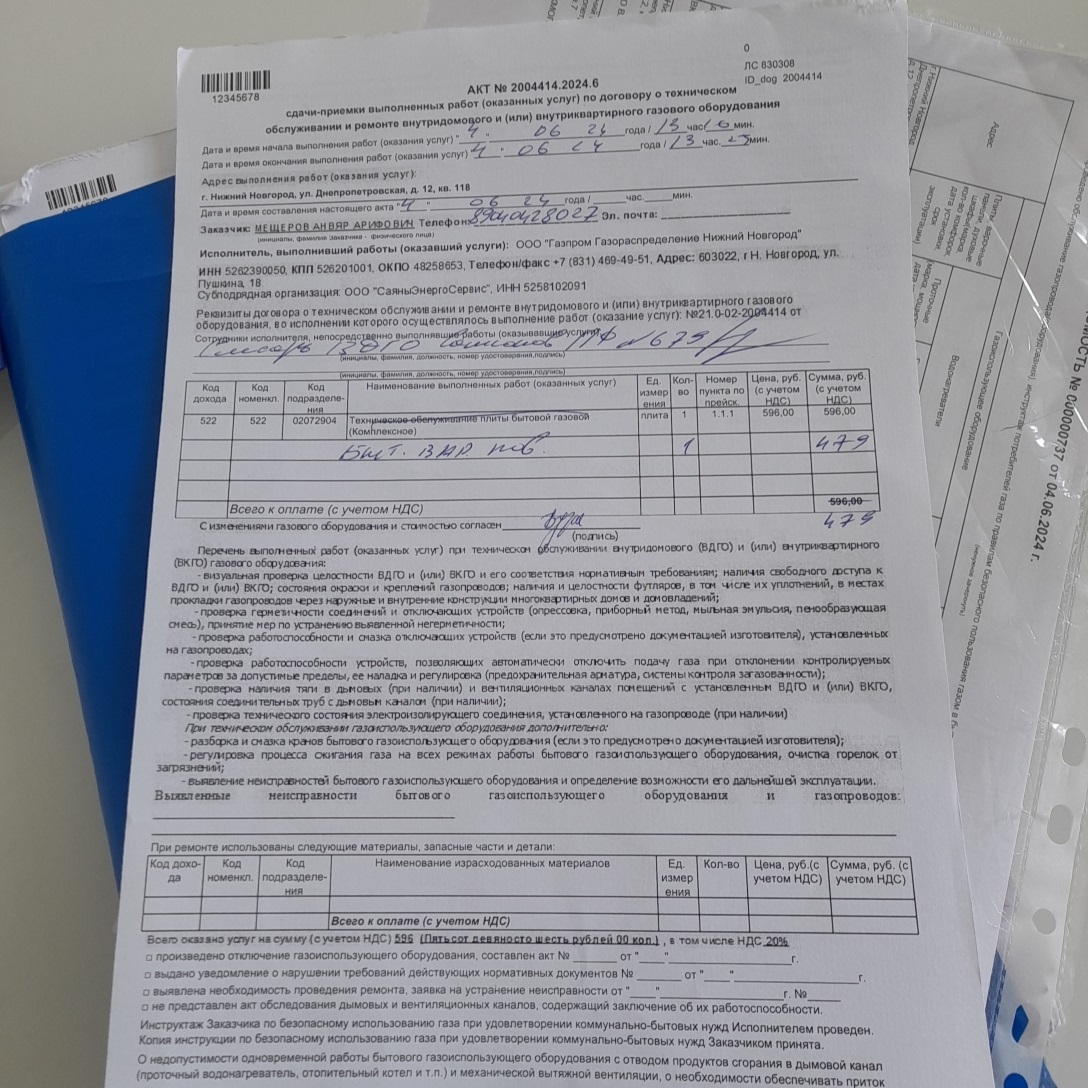 0
ЛС 830308
ID_dog 2004414
12345678
АКТ № 2004414.2024.6
сдачи-приемки выполненных работ (оказанных услуг) по договору о техническом
обслуживании и ремонте внутридомового и (или) внутриквартирного газового оборудования
Дата и время начала выполнения работ (оказания услуг) "4" 06 24 года / 13 час 16 мин.
Дата и время окончания выполнения работ (оказания услуг) "4" 06 24 года / 13 час. 25 мин.
Адрес выполнения работ (оказания услуг):
г. Нижний Новгород, ул. Днепропетровская, д. 12, кв. 118
Дата и время составления настоящего акта "4" 06 24 года / час. мин.
Заказчик: МЕЩЕРОВ АНВЯР АРИФОВИЧ Телефон: 89040428027 Эл. почта:
(инициалы, фамилия заказчика - физического лица)
Исполнитель, выполнивший работы (оказавший услуги): ООО "Газпром Газораспределение Нижний Новгород"
ИНН 5262390050, КПП 526201001, ОКПО 48258653, Телефон/факс +7 (831) 469-49-51, Адрес: 603022, г Н. Новгород, ул.
Пушкина, 18
Субподрядная организация: ООО "СаяныЭнергоСервис", ИНН 5258102091
Реквизиты договора о техническом обслуживании и ремонте внутридомового и (или) внутриквартирного газового
оборудования, во исполнении которого осуществлялось выполнение работ (оказание услуг): №21.0-02-2004414 от
Сотрудники исполнителя, непосредственно выполнявшие работы (оказывавшие услуги):
Слесарь ВДГО №679
(инициалы, фамилия, должность, номер удостоверения,подпись)
(инициалы, фамилия, должность, номер удостоверения,подпись)
Код дохода Код номенкл. Код подразделе-ния Наименование выполненных работ (оказанных услуг) Ед. измерения Кол-во Номер пункта по прейск. Цена, руб. (с учетом НДС) Сумма, руб. (с учетом НДС)
522 522 02072904 Техническое обслуживание плиты бытовой газовой (Комплексное) плита 1 1.1.1 596,00 596,00
Быт. вар. пов. 1 479
Всего к оплате (с учетом НДС) 596,00
479
С изменениями газового оборудования и стоимостью согласен
(подпись)
Перечень выполненных работ (оказанных услуг) при техническом обслуживании внутридомового (ВДГО) и (или) внутриквартирного
(ВКГО) газового оборудования:
- визуальная проверка целостности ВДГО и (или) ВКГО и его соответствия нормативным требованиям; наличия свободного доступа к
ВДГО и (или) ВКГО; состояния окраски и креплений газопроводов; наличия и целостности футляров, в том числе их уплотнений, в местах
прокладки газопроводов через наружные и внутренние конструкции многоквартирных домов и домовладений;
- проверка герметичности соединений и отключающих устройств (опрессовка, приборный метод, мыльная эмульсия, пенообразующая
смесь), принятие мер по устранению выявленной негерметичности;
- проверка работоспособности и смазка отключающих устройств (если это предусмотрено документацией изготовителя), установленных
на газопроводах;
- проверка работоспособности устройств, позволяющих автоматически отключить подачу газа при отклонении контролируемых
параметров за допустимые пределы, ее наладка и регулировка (предохранительная арматура, системы контроля загазованности);
- проверка наличия тяги в дымовых (при наличии) и вентиляционных каналах помещений с установленным ВДГО и (или) ВКГО,
состояния соединительных труб с дымовым каналом (при наличии);
- проверка технического состояния электроизолирующего соединения, установленного на газопроводе (при наличии)
При техническом обслуживании газоиспользующего оборудования дополнительно:
- разборка и смазка кранов бытового газоиспользующего оборудования (если это предусмотрено документацией изготовителя);
- регулировка процесса сжигания газа на всех режимах работы бытового газоиспользующего оборудования, очистка горелок от
загрязнений;
- выявление неисправностей бытового газоиспользующего оборудования и определение возможности его дальнейшей эксплуатации.
Выявленные неисправности бытового газоиспользующего оборудования и газопроводов:
При ремонте использованы следующие материалы, запасные части и детали:
Код дохо-да Код номенкл. Код подразделе-ния Наименование израсходованных материалов Ед. измерения Кол-во Цена, руб.(с учетом НДС) Сумма, руб. (с учетом НДС)
Всего к оплате (с учетом НДС)
Всего оказано услуг на сумму (с учетом НДС) 596 (Пятьсот девяносто шесть рублей 00 коп.) , в том числе НДС 20%
□ произведено отключение газоиспользующего оборудования, составлен акт № от "" г.
□ выдано уведомление о нарушении требований действующих нормативных документов № от "" г.
□ выявлена необходимость проведения ремонта, заявка на устранение неисправности от "" г. №
□ не представлен акт обследования дымовых и вентиляционных каналов, содержащий заключение об их работоспособности.
Инструктаж Заказчика по безопасному использованию газа при удовлетворении коммунально-бытовых нужд Исполнителем проведен.
Копия инструкции по безопасному использованию газа при удовлетворении коммунально-бытовых нужд Заказчиком принята.
О недопустимости одновременной работы бытового газоиспользующего оборудования с отводом продуктов сгорания в дымовой канал
(проточный водонагреватель, отопительный котел и т.п.) и механической вытяжной вентиляции, о необходимости обеспечивать приток
№ 000000737 от 04.06.2024 г.
Адрес
Водонагреватели
Газоиспользующее оборудование